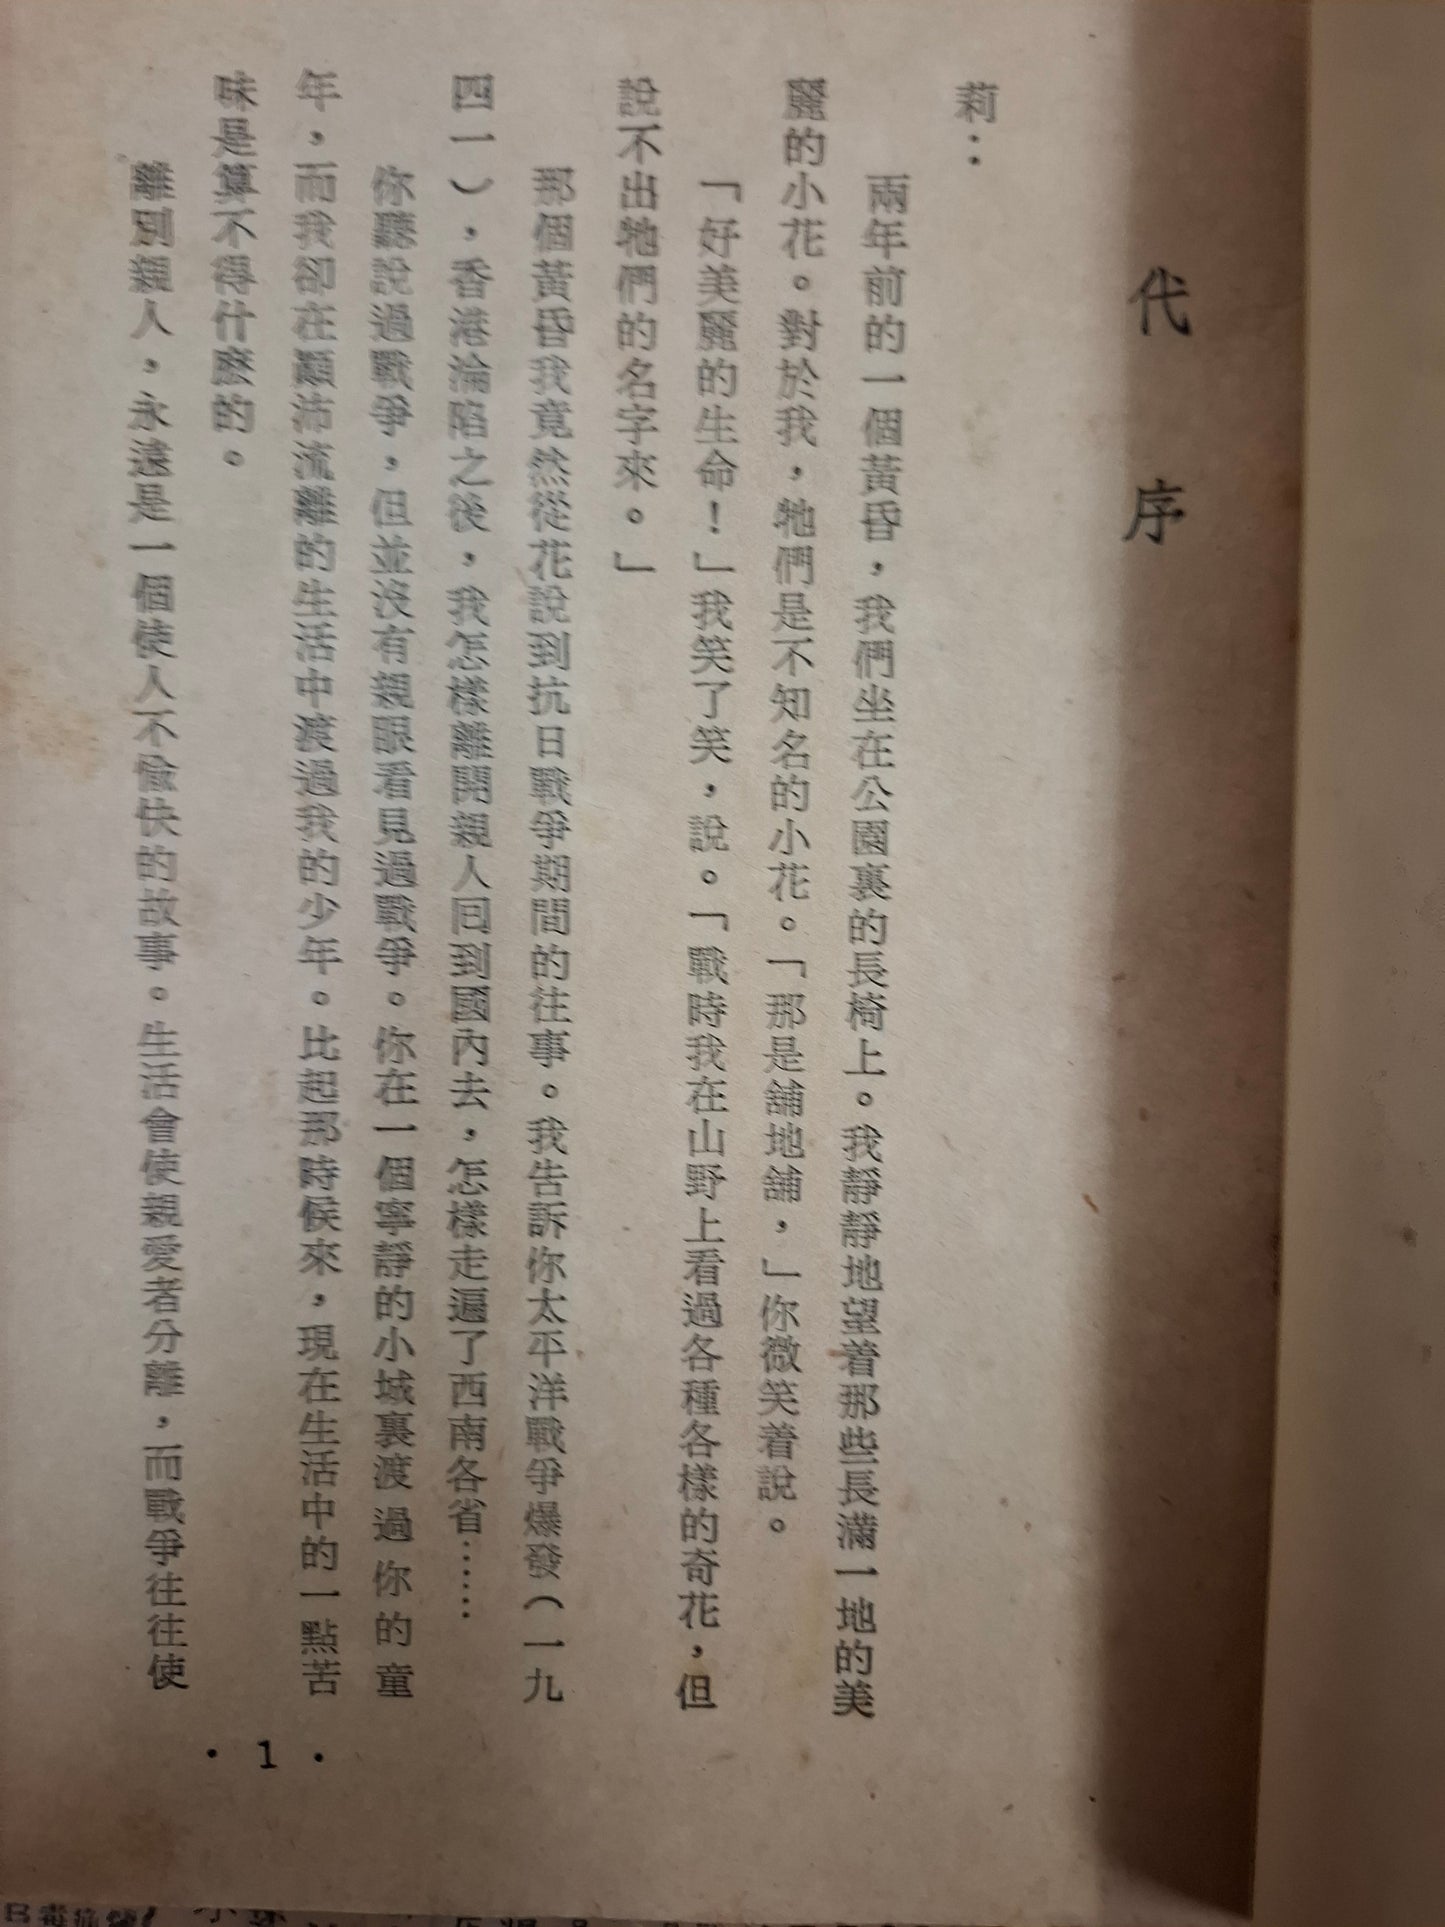 代序
莉：
兩年前的一個黃昏，我們坐在公園裏的長椅上。我靜靜地望着那些長滿一地的美
麗的小花。對於我，牠們是不知名的小花。「那是舖地舖，」你微笑着說。
「好美麗的生命！」我笑了笑，說。「戰時我在山野上看過各種各樣的奇花，但
說不出牠們的名字來。」
那個黃昏我竟然從花說到抗日戰爭期間的往事。我告訴你太平洋戰爭爆發（一九
四一），香港淪陷之後，我怎樣離開親人囘到國內去，怎樣走遍了西南各省……
你聽說過戰爭，但並沒有親眼看見過戰爭。你在一個寧靜的小城裏渡過你的童
年，而我卻在顚沛流離的生活中渡過我的少年。比起那時候來，現在生活中的一點苦
味是算不得什麽的。
離別親人，永遠是一個使人不愉快的故事。生活會使親愛者分離，而戰爭往往使
·1·